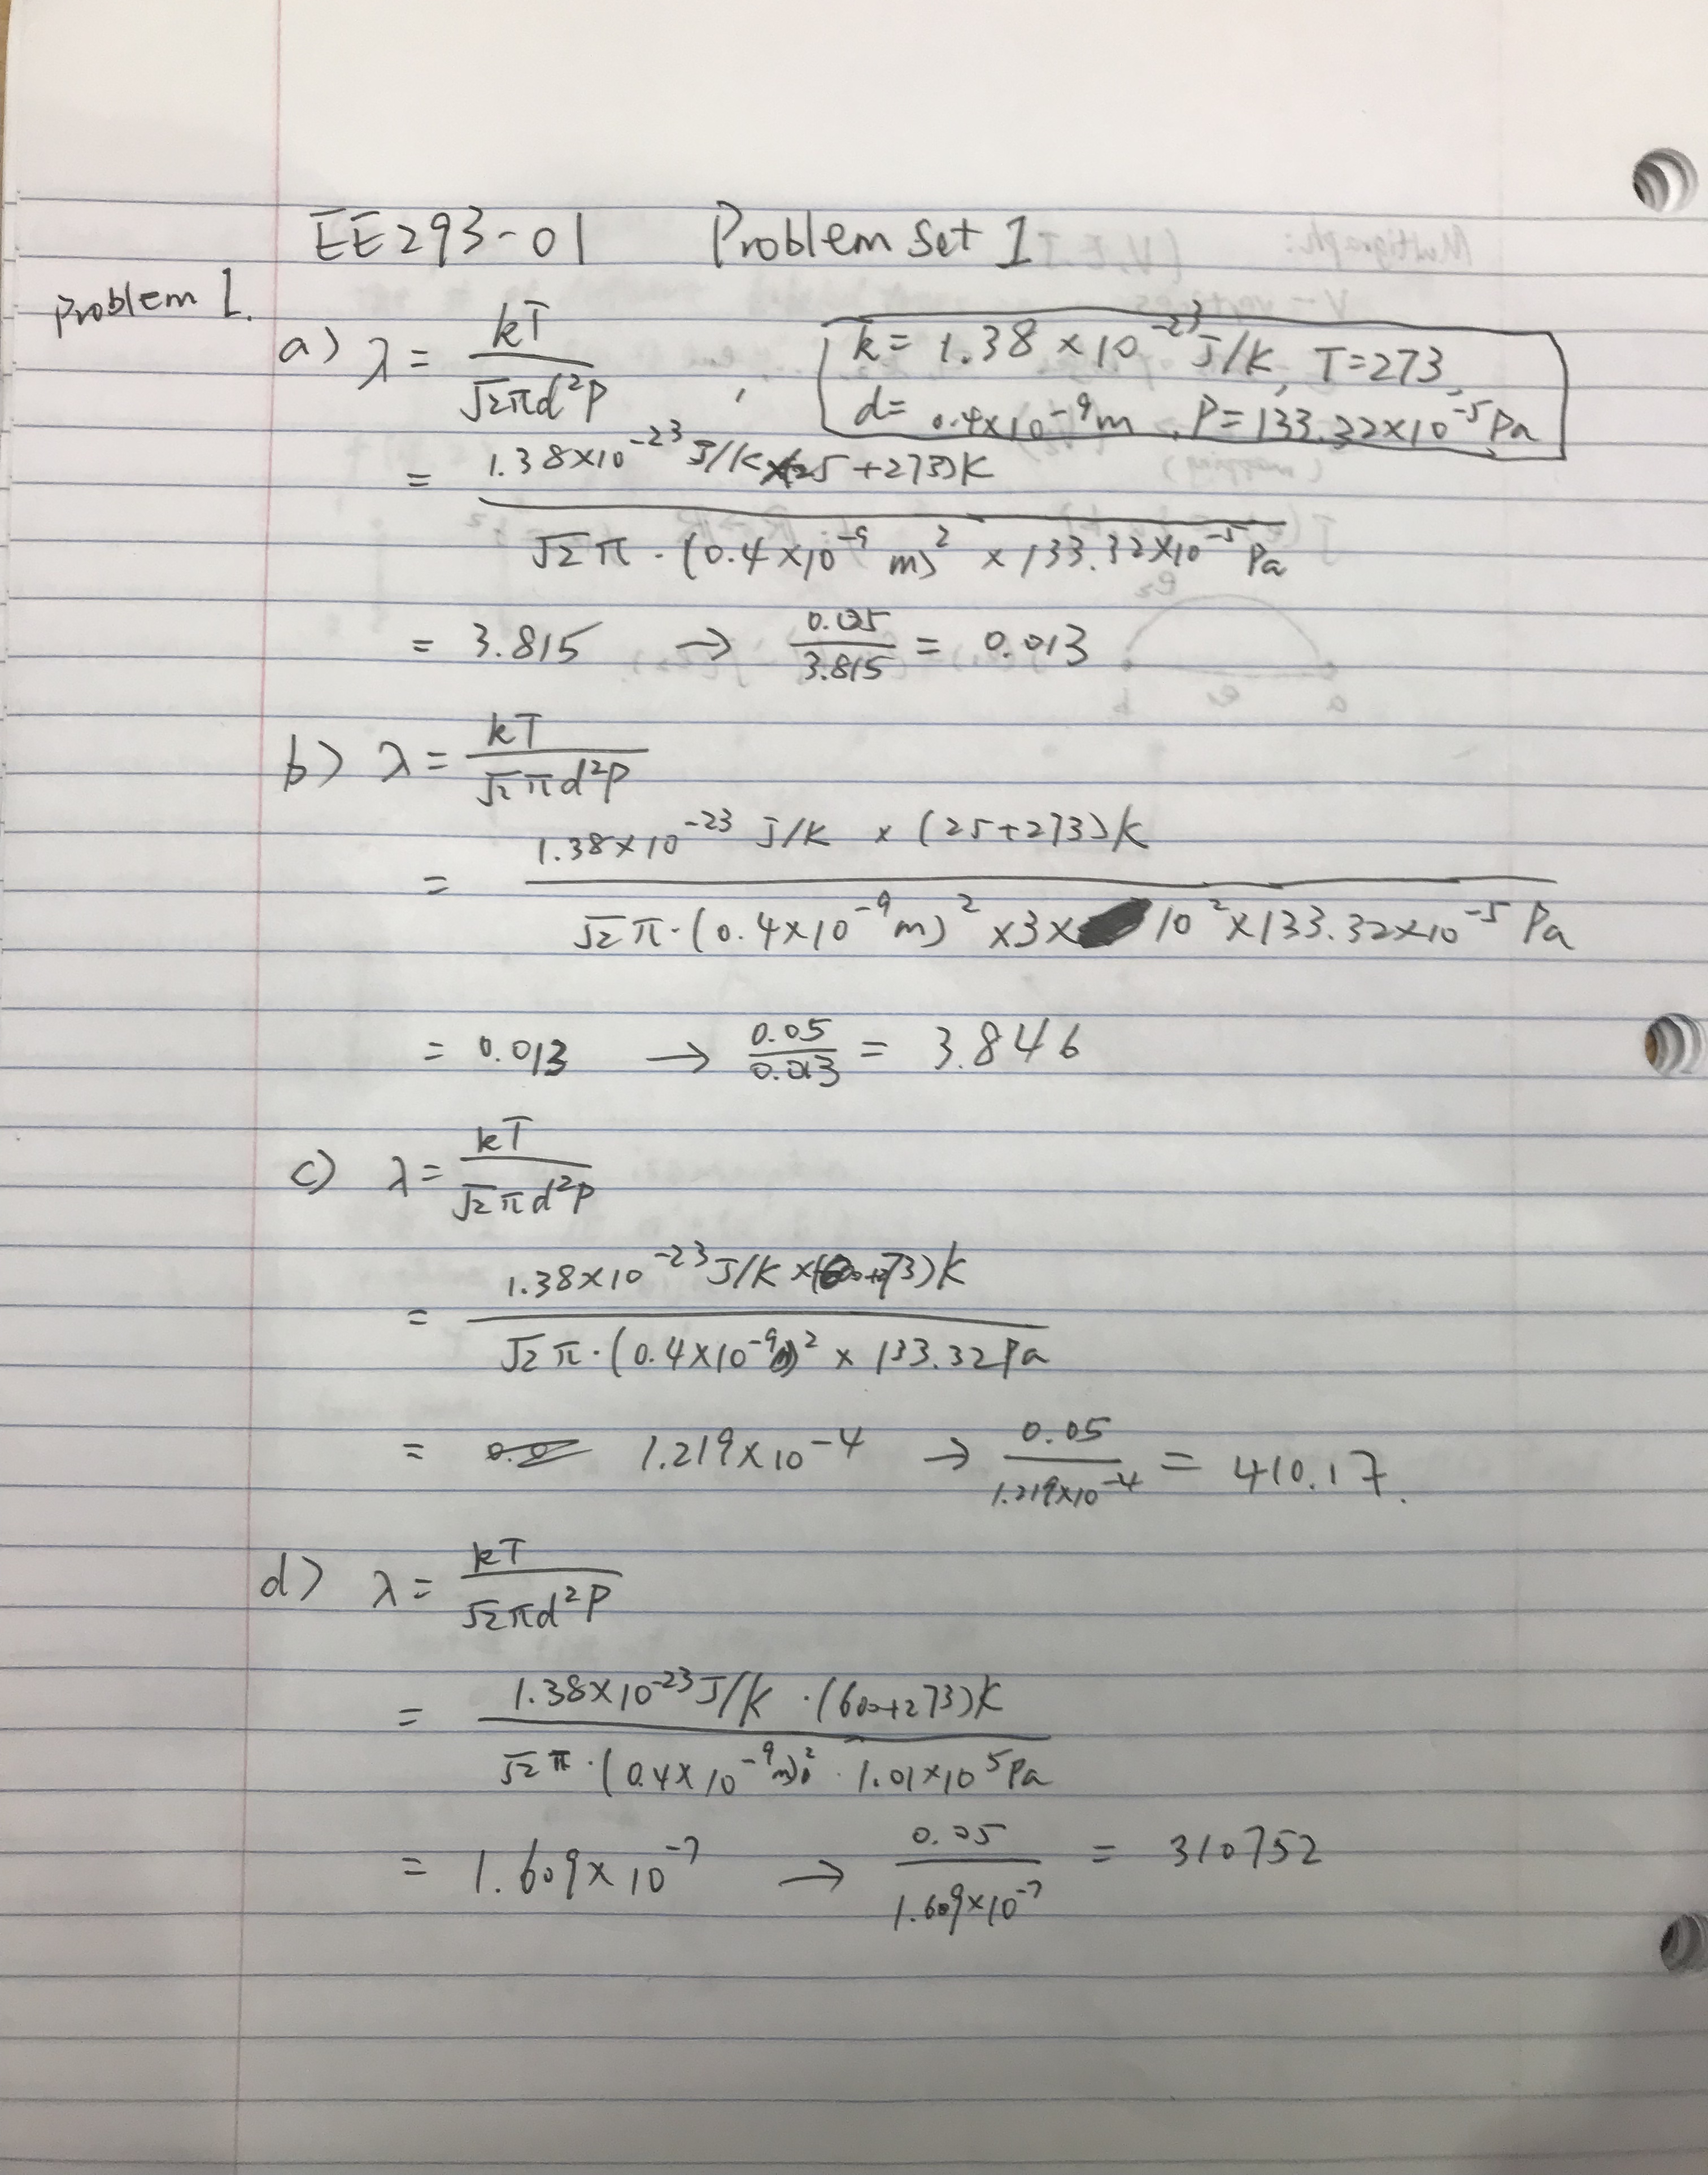 EE293-01 Problem Set 1
Problem 1.
a) λ = kT / √2πd²P , k = 1.38 × 10⁻²³ J/K, T = 273,
d = 0.4×10⁻⁹ m, P = 133.32×10⁻⁵ Pa
= 1.38×10⁻²³ J/K × (25+273)K / √2 π · (0.4×10⁻⁹ m)² × 133.32×10⁻⁵ Pa
= 3.815 → 0.05 / 3.815 = 0.013
b) λ = kT / √2πd²P
= 1.38×10⁻²³ J/K × (25+273)K / √2 π · (0.4×10⁻⁹ m)² ×3× 10² ×133.32×10⁻⁵ Pa
= 0.013 → 0.05 / 0.013 = 3.846
c) λ = kT / √2πd²P
= 1.38×10⁻²³ J/K × (600+273)K / √2 π · (0.4×10⁻⁹)² × 133.32 Pa
= 1.219×10⁻⁴ → 0.05 / 1.219×10⁻⁴ = 410.17.
d) λ = kT / √2πd²P
= 1.38×10⁻²³ J/K · (600+273)K / √2 π · (0.4×10⁻⁹ m)² · 1.01×10⁵ Pa
= 1.609×10⁻⁷ → 0.05 / 1.609×10⁻⁷ = 310752